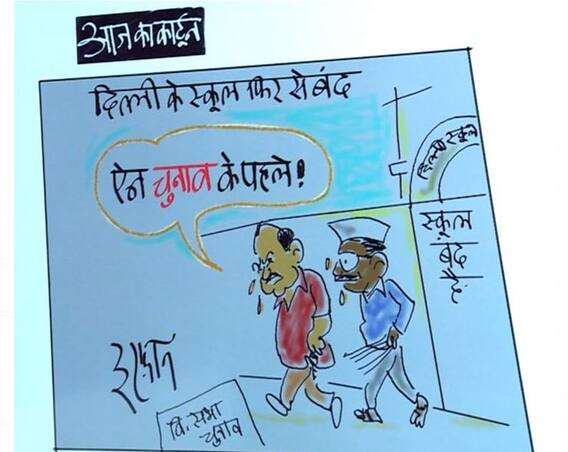 आज का कार्टून
दिल्ली के स्कूल फिर से बंद
ऐन चुनाव के पहले!
दिल्ली स्कूल
स्कूल
बंद
हैं
इरफान
वि. सभा
चुनाव